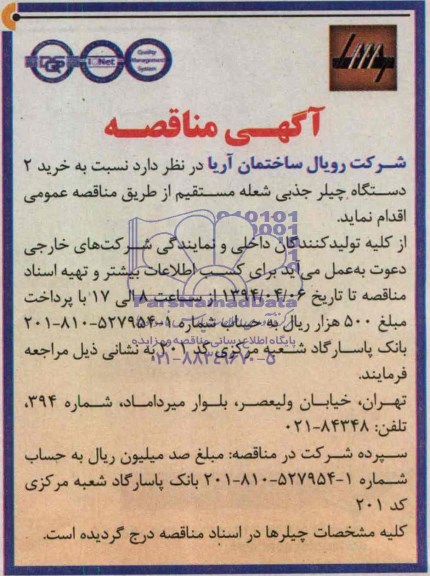 Quality
Management
System
IQNet
آگهی مناقصه
شرکت رویال ساختمان آریا در نظر دارد نسبت به خرید ۲
دستگاه چیلر جذبی شعله مستقیم از طریق مناقصه عمومی
اقدام نماید.
از کلیه تولیدکنندگان داخلی و نمایندگی شرکت‌های خارجی
دعوت به‌عمل می‌آید برای کسب اطلاعات بیشتر و تهیه اسناد
مناقصه تا تاریخ ۱۳۹۴/۰۴/۰۶ از ساعت ۸ الی ۱۷ با پرداخت
مبلغ ۵۰۰ هزار ریال به حساب شماره ۱-۵۲۷۹۵۴-۸۱۰-۲۰۱
بانک پاسارگاد شعبه مرکزی کد ۲۰۱ به نشانی ذیل مراجعه
فرمایند.
تهران، خیابان ولیعصر، بلوار میرداماد، شماره ۳۹۴،
تلفن: ۸۴۳۴۸-۰۲۱
سپرده شرکت در مناقصه: مبلغ صد میلیون ریال به حساب
شماره ۱-۵۲۷۹۵۴-۸۱۰-۲۰۱ بانک پاسارگاد شعبه مرکزی
کد ۲۰۱
کلیه مشخصات چیلرها در اسناد مناقصه درج گردیده است.
ParsNamadData
پایگاه اطلاع رسانی مناقصه و مزایده
۰۲۱-۸۸۳۴۹۶۷۰-۵